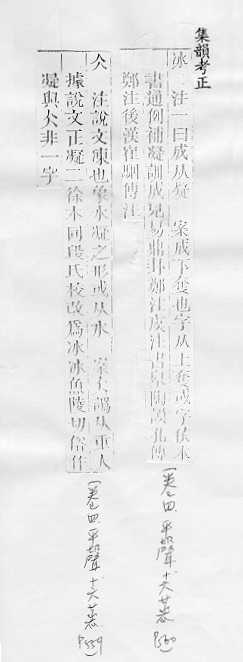 集韻考正
冰 注一曰成从凝 案成下奪也字从上奪或字依本
書通例補凝訓成見易鼎卦鄭注虞注書皋陶謨孔傳
鄭注後漢崔駰傳注
(卷四 平聲 十六蒸 P560)
仌 注說文凍也象水凝之形或从水 案仌譌从重人
據說文正凝二徐本同段氏校改爲冰冰魚陵切俗作
凝與仌非一字
(卷四 平聲 十六蒸 P559)